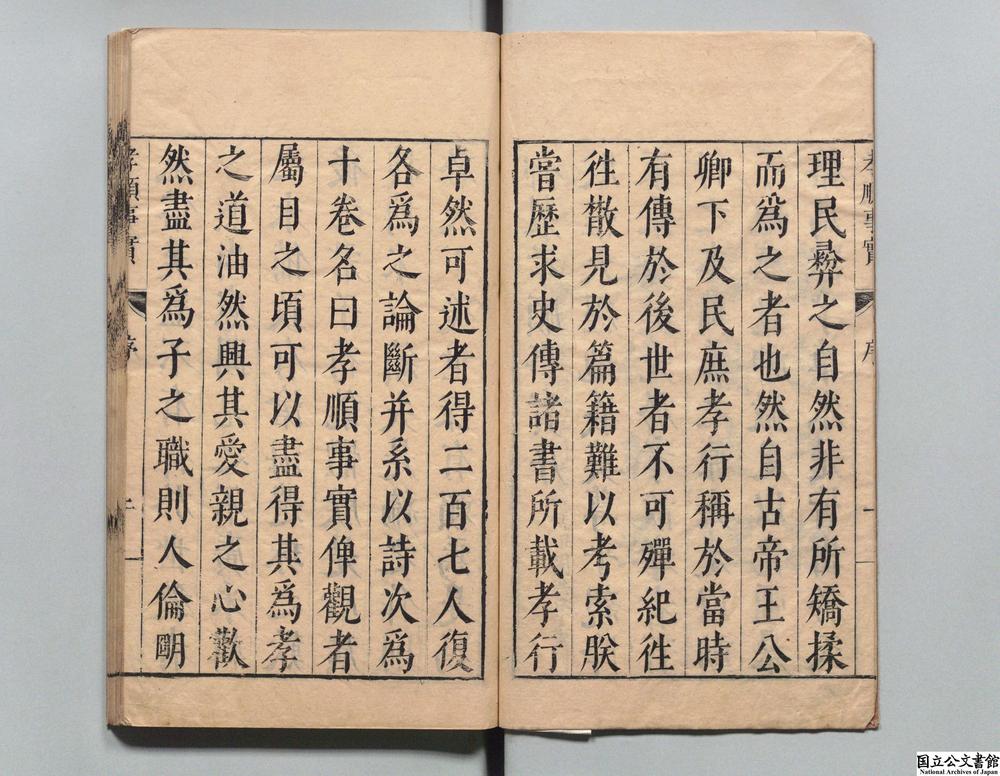 孝順事實 序
理民彛之自然非有所矯揉
而爲之者也然自古帝王公
卿下及民庶孝行稱於當時
有傳於後世者不可殫紀徃
徃散見於篇籍難以考索朕
嘗歷求史傳諸書所載孝行
卓然可述者得二百七人復
各爲之論斷并系以詩次爲
十卷名曰孝順事實俾觀者
屬目之頃可以盡得其爲孝
之道油然興其愛親之心歡
然盡其爲子之職則人倫明
孝順事實 序
国立公文書館
National Archives of Japan